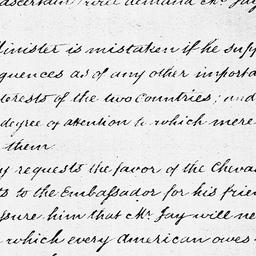 ascertain
Minister is mistaken if he supp
quences as of any other importa
terests of the two Countries; and
degree of attention to which mere
them.
y requests the favor of the Cheva
ts to the Embassador for his frien
ssure him that Mr. Jay will ne
which every American owes